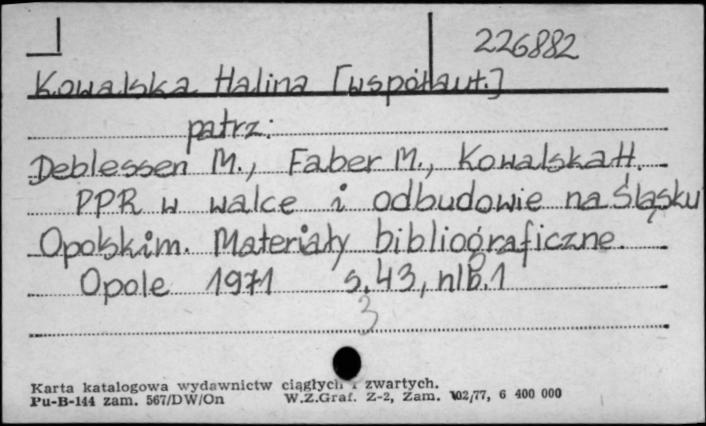 226882
Kowalska Halina [współaut.]
patrz:
Deblessen M., Faber M., Kowalska H.
PPR w walce i odbudowie na Śląsku
Opolskim. Materiały bibliograficzne.
Opole 1971 s. 43, nlb. 1
3
Karta katalogowa wydawnictw ciągłych i zwartych.
Pu-B-144 zam. 567/DW/On W.Z.Graf. Z-2, Zam. 102/77, 6 400 000